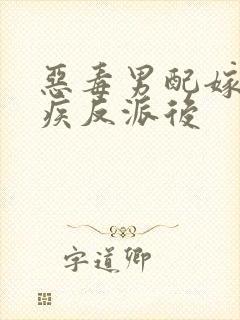 惡毒男配嫁
疾反派後
字道卿